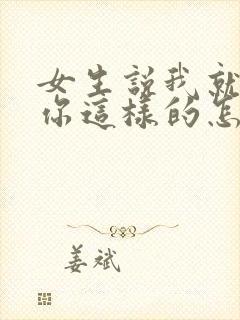 女生説我就
你這樣的怎
姜斌